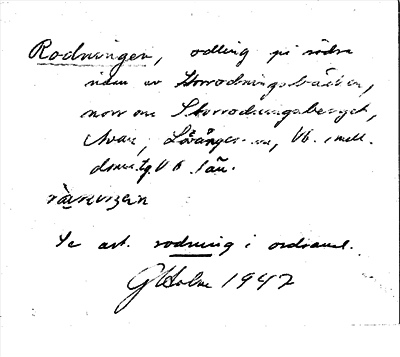 Rodningen, odling på södra
sidan av Storrodningsbäcken,
norr om Storrodningsberget,
Lövånger VB. mell.
doms.tg. VB. län.
Se art. rodning i ordsaml.
GHolm 1947